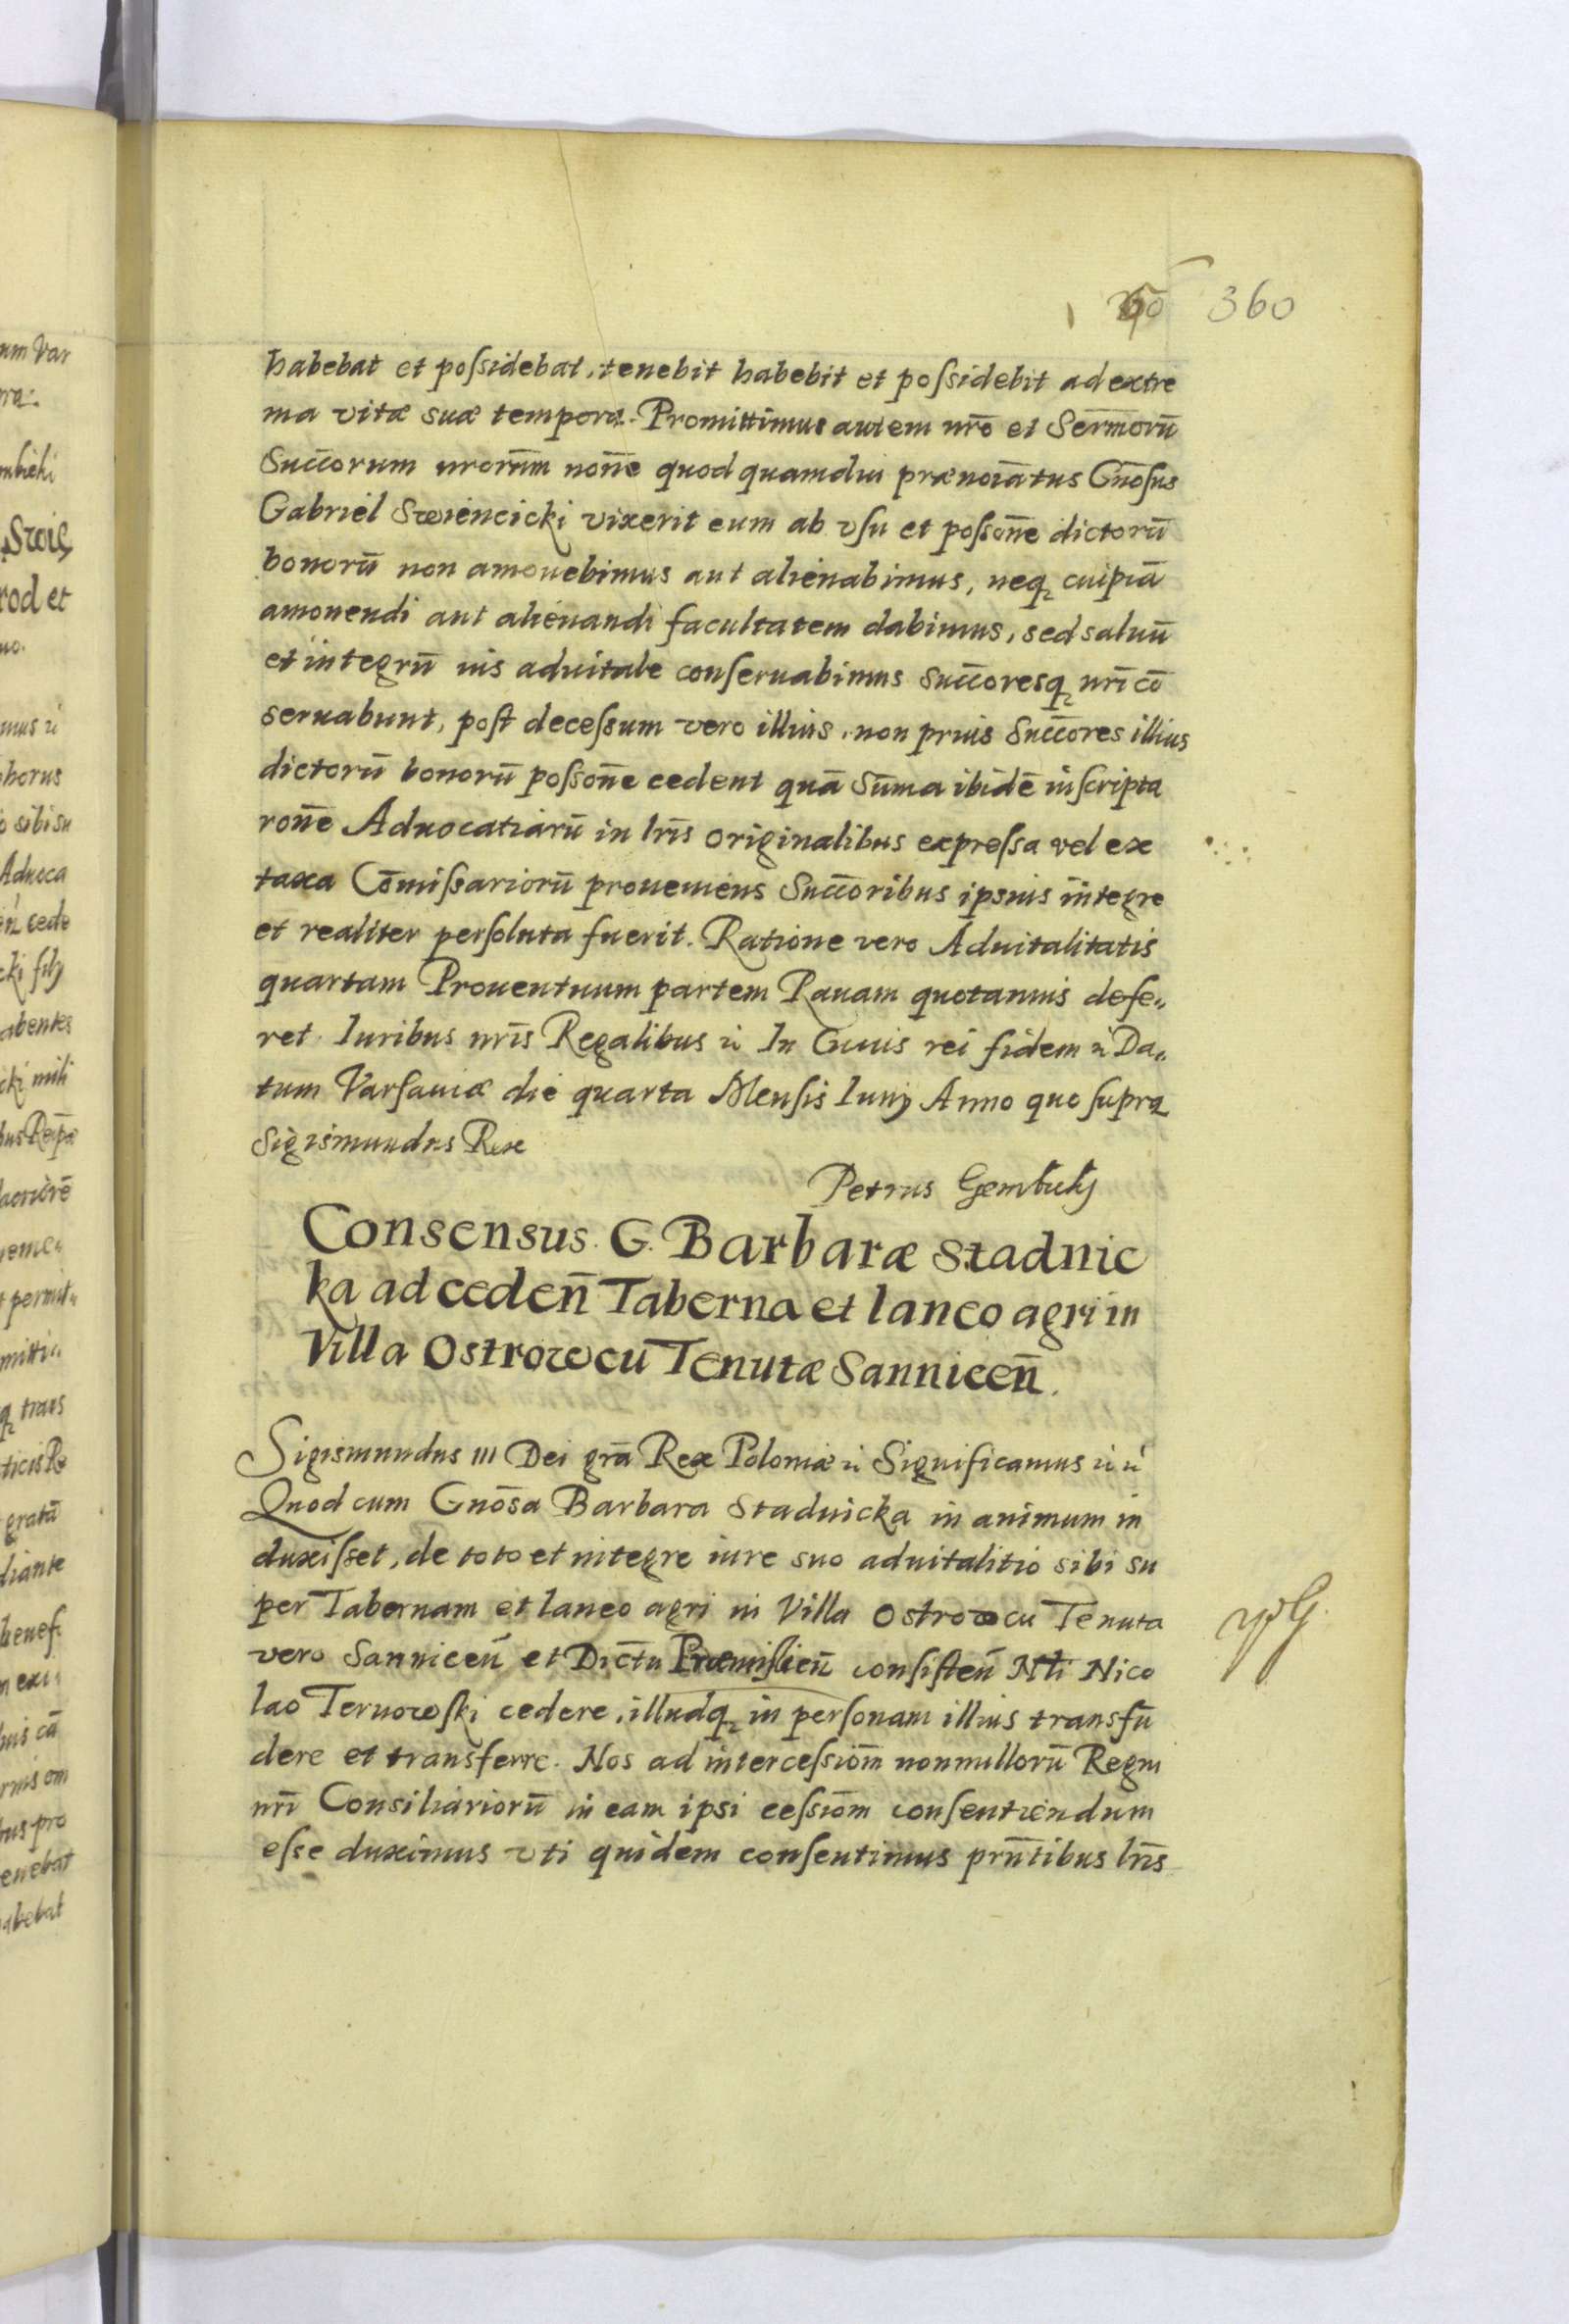 360
habebat et poſsidebat, tenebit habebit et poſsidebit ad extre
ma vitæ suæ tempora. Promittimus autem nr̄o et Sermōrū
Succ̄orum nrorūm non̄e quod quamdiu prænoīatus Gnōſus
Gabriel Swiencicki vixerit eum ab vſu et poſson̄e dictorū
bonorū non amouebimus aut alienabimus, neqꝫ cuipiā
amouendi aut alienandi facultatem dabimus, sed saluū
et integrū ius aduitale conſeruabimus Succ̄oresqꝫ nrī cō
seruabunt, poſt deceſsum vero illius, non prius Succ̄ores illius
dictorū bonorū poſson̄e cedent quā Sūma ibidē inſcripta
ron̄e Aduocatiarū in lrīs originalibus expreſsa vel ex
taxa Cōmiſsariorū proueniens Succ̄oribus ipsius integre
et realiter perſoluta fuerit. Ratione vero Aduitalitatis
quartam Prouentuum partem Rauam quotannis defe„
ret. Iuribus nrīs Regalibus ꝛc In Cuius rei fidem ꝛc Da„
tum Varſauiæ die quarta Menſis Iunij Anno quo ſupra
Sigismundus Rex
Petrus Gembicky
Consensus G. Barbaræ Stadnic
ka ad ceden̄ Taberna et laneo agri in
Villa Ostrowcu Tenutæ Sanniceń̄.
Sigismundus III Dei grā Rex Poloniæ ꝛc Significamus ꝛc ꝛc
Quod cum Gnōsa Barbara Stadnicka in animum in
duxiſset, de toto et integre iure suo aduitalitio sibi su
per Tabernam et laneo agri in Villa Ostrowcu Tenuta
vero Sannicen̄ et Dicttu Præmiſlien̄ conſiſten̄ Nlī Nico
lao Ternowſki cedere, illudqꝫ in perſonam illius transfū
dere et transferre. Nos ad interceſsiōm nonnullorū Regni
nrī Consiliariorū in eam ipsi ceſsiōm conſentiendum
eſse duximus vti quidem conſentimus prn̄tibus lrīs